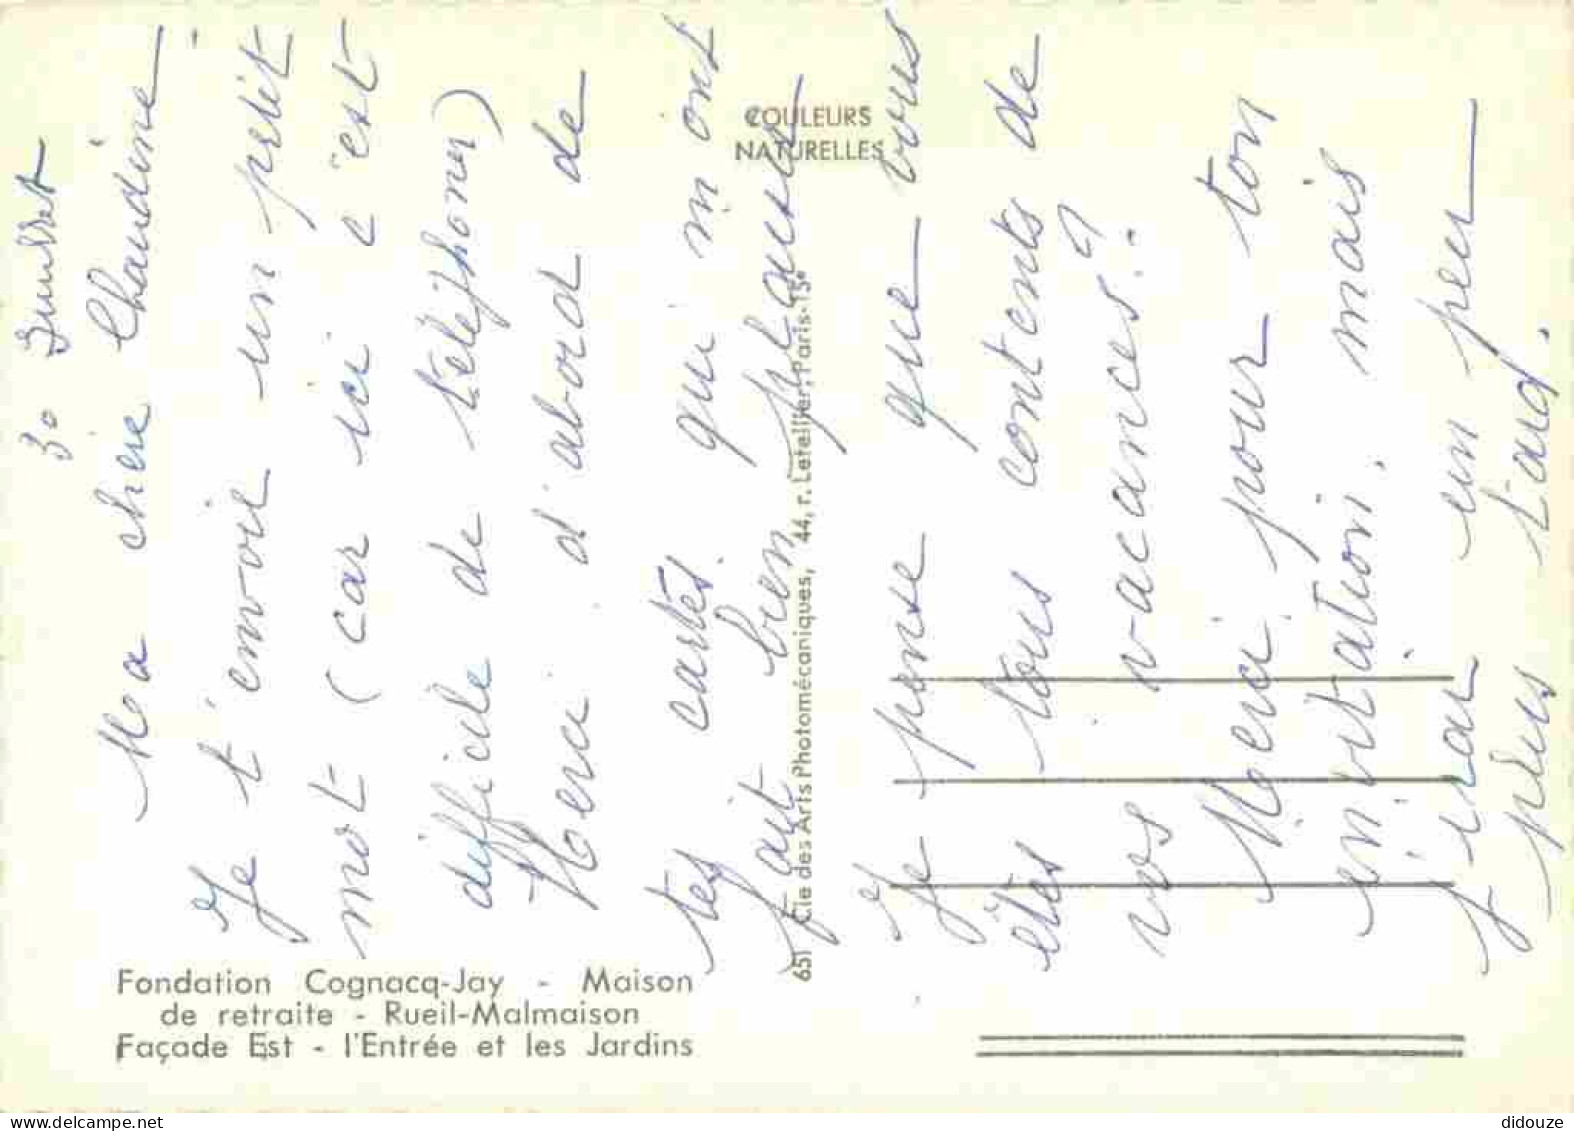 30 Juillet
Ma chère Claudine
Je t'envoie un petit
mot (car ici c'est
difficile de téléphoner)
Merci d'abord de
tes cartes qui m'ont
fait bien plaisir
Je pense que vous
êtes tous contents de
vos vacances?
Merci pour ton
invitation, mais
j'irai un peu
plus tard.
COULEURS
NATURELLES
651 Cie des Arts Photomécaniques, 44, r. Letellier, Paris-15e
Fondation Cognacq-Jay - Maison
de retraite - Rueil-Malmaison
Façade Est - l'Entrée et les Jardins
didouze